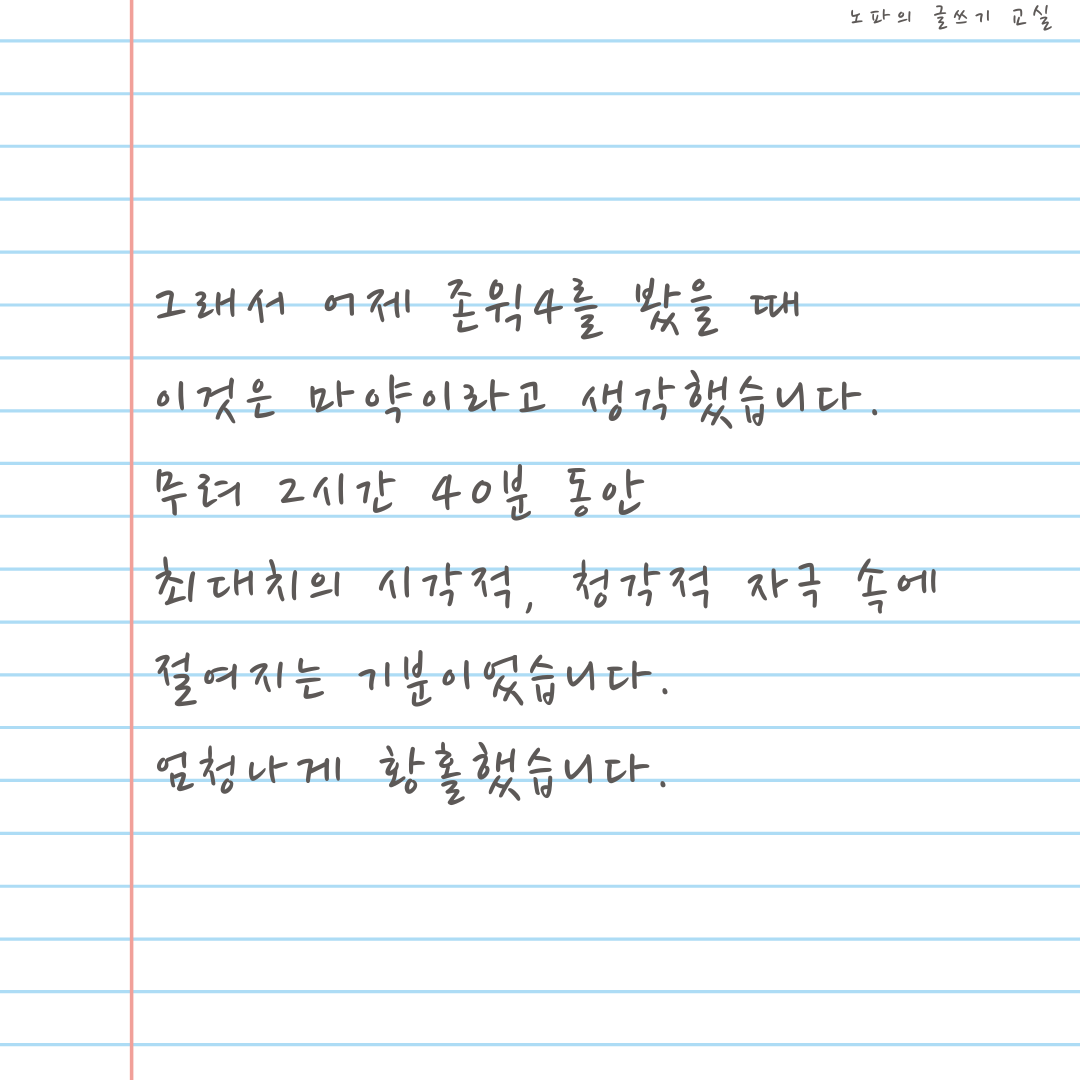 노파의 글쓰기 교실
그래서 어제 존윅4를 봤을 때
이것은 마약이라고 생각했습니다.
무려 2시간 40분 동안
최대치의 시각적, 청각적 자극 속에
절여지는 기분이었습니다.
엄청나게 황홀했습니다.